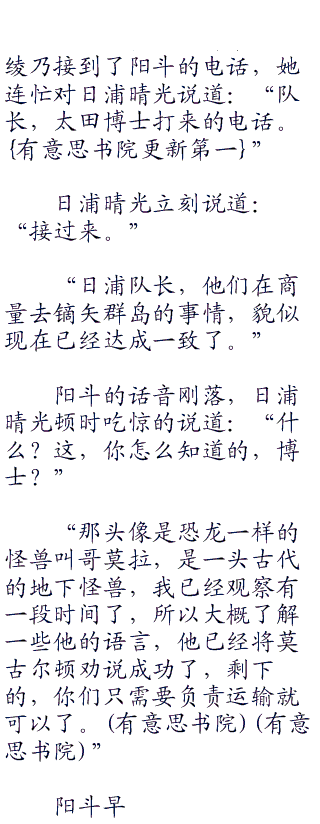 绫乃接到了阳斗的电话，她
连忙对日浦晴光说道：“队
长，太田博士打来的电话。
{有意思书院更新第一}”
日浦晴光立刻说道：
“接过来。”
“日浦队长，他们在商
量去镝矢群岛的事情，貌似
现在已经达成一致了。”
阳斗的话音刚落，日浦
晴光顿时吃惊的说道：“什
么？这，你怎么知道的，博
士？”
“那头像是恐龙一样的
怪兽叫哥莫拉，是一头古代
的地下怪兽，我已经观察有
一段时间了，所以大概了解
一些他的语言，他已经将莫
古尔顿劝说成功了，剩下
的，你们只需要负责运输就
可以了。(有意思书院)(有意
思书院)”
阳斗早